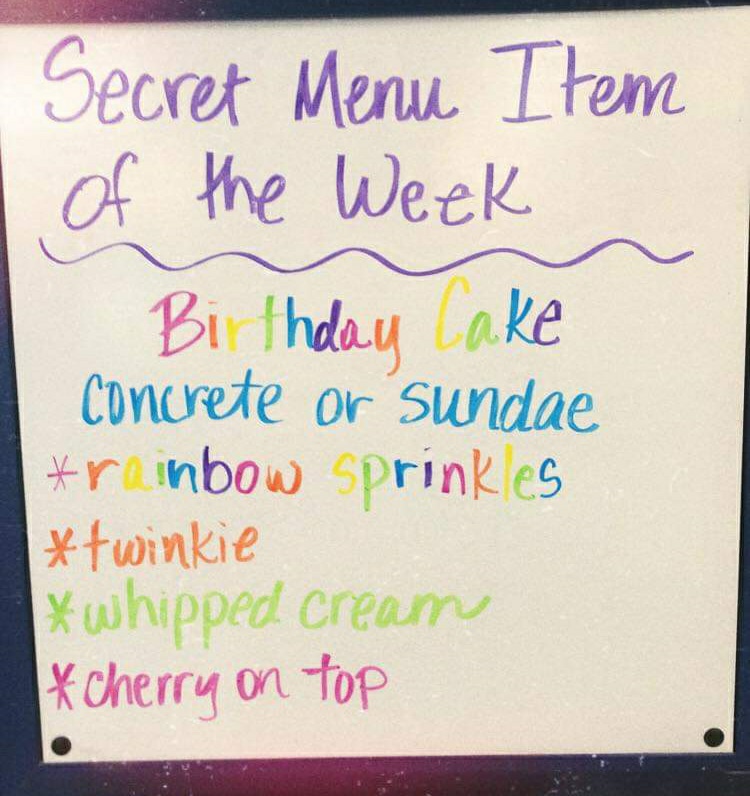 Secret Menu Item
of the Week
Birthday Cake
Concrete or Sundae
*rainbow sprinkles
*twinkie
*whipped cream
*cherry on top